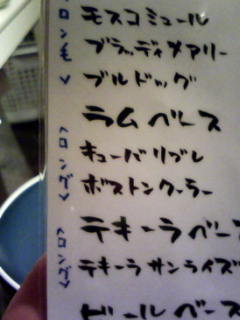 モスコミュール
ブラッディメアリー
ブルドッグ
ラムベース
<ロング>
キューバリブレ
ボストンクーラー
テキーラベース
<ロング>
テキーラサンライズ
ビールベース